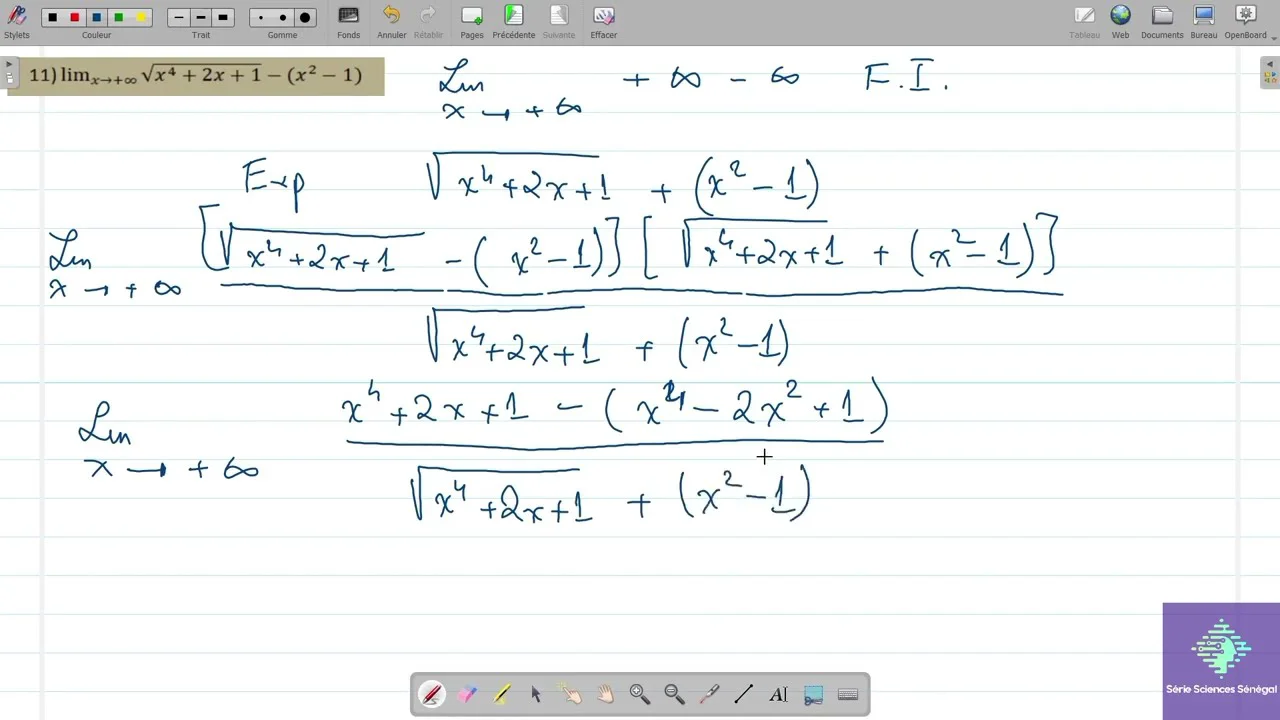 Stylets Couleur Trait Gomme Fonds Annuler Rétablir Pages Précédente Suivante Effacer Tableau Web Documents Bureau OpenBoard
11) lim x→+∞ √(x⁴ + 2x + 1) − (x² − 1)
Lim x → +∞ +∞ − ∞ F.I.
Exp √(x⁴+2x+1) + (x² − 1)
Lim x → +∞ [√(x⁴+2x+1) − (x² − 1)] [√(x⁴+2x+1) + (x² − 1)]
√(x⁴+2x+1) + (x² − 1)
Lim x → +∞ x⁴ + 2x + 1 − (x⁴ − 2x² + 1)
√(x⁴ + 2x + 1) + (x² − 1)
Série Sciences Sénégal
AI